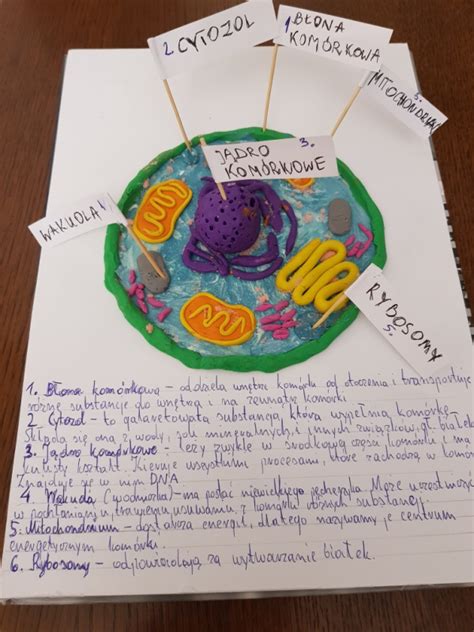 2. CYTOZOL
1. BŁONA
KOMÓRKOWA
5.
MITOCHONDRIUM
3.
JĄDRO
KOMÓRKOWE
WAKUOLA 4
RYBOSOMY
5.
1. Błona komórkowa - oddziela wnętrze komórki od otoczenia i transportuje
różne substancje do wnętrza i na zewnątrz komórki
2 Cytozol - to galaretowata substancja, która wypełnia komórkę
Składa się ona z wody, soli mineralnych i innych związków białek
3. Jądro komórkowe - leży zwykle w środkowej części komórki i ma
kulisty kształt. Kieruje wszystkimi procesami, które zachodzą w komórce
Znajduje się w nim DNA
4 Wakuola (wodniczka) - ma postać niewielkiego pęcherzyka. Może uczestniczyć
w pochłanianiu, trawieniu, usuwaniu z komórki substancji.
5. Mitochondrium - dostarcza energii, dlatego nazywamy je centrum
energetycznym komórki.
6. Rybosomy - odpowiadają za wytwarzanie białek.